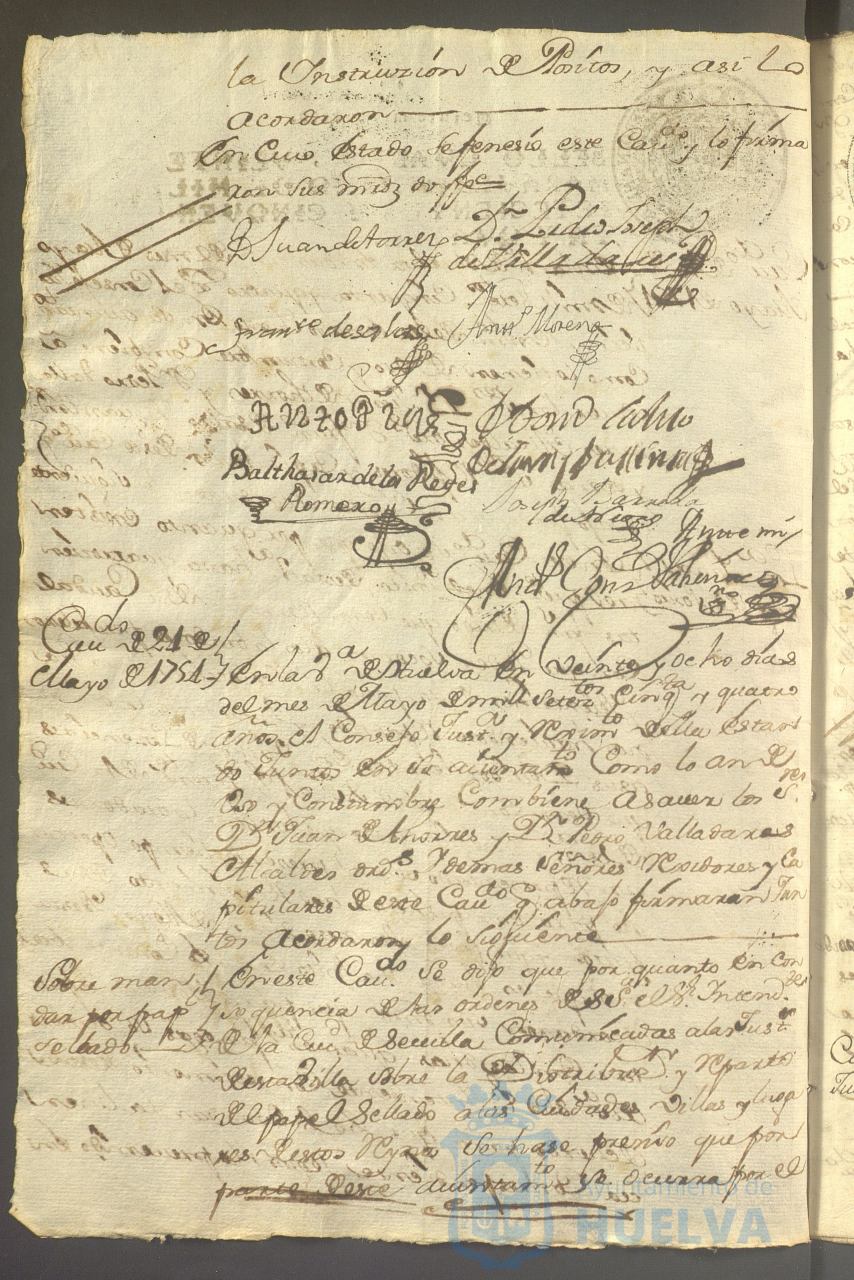 la Instruzión de Positos, y asi lo
acordaron
En Cuio Estado se fenesio este Cavdo y lo firma
ron sus mrdz doy fee
D Juan de torres Dn Pedro Joseph
de Valladares
franco de
Anto Moreno
Balthasar de los Reyes
Romero
Joseph Barrera
Ante mi
Cavdo de 21 de
Mayo de 1754
En la Va de Huelva en veinte y ocho dias
del mes de Mayo de mill setezos cinqta y quatro
años. El Consejo Justa y Reximto della estan
do Juntos en su aiuntamto Como lo an de
Uso y Constumbre Combiene a saver los Sres
Dn Juan de thorres y Dn Pedro Valladares
Alcaldes ords, y demas Señores Rexidores y Ca
pitulares de este Cavdo q abajo firmaran Jun
tos acordaron lo siguiente
Sobre man
dar por pap
sellado
En este Cavdo se dijo que por quanto en con
sequencia de las ordenes del Sr Intendte
de la Ciud de Sevilla Comunicadas a las Justas
de esta Villa sobre la Distribuon y Reparto
del papel Sellado a las Ciudades Villas y luga
res de estos Reynos se hase presiso que por
parte de este aiuntamto se ocurra por el
Ayuntamiento de
HUELVA